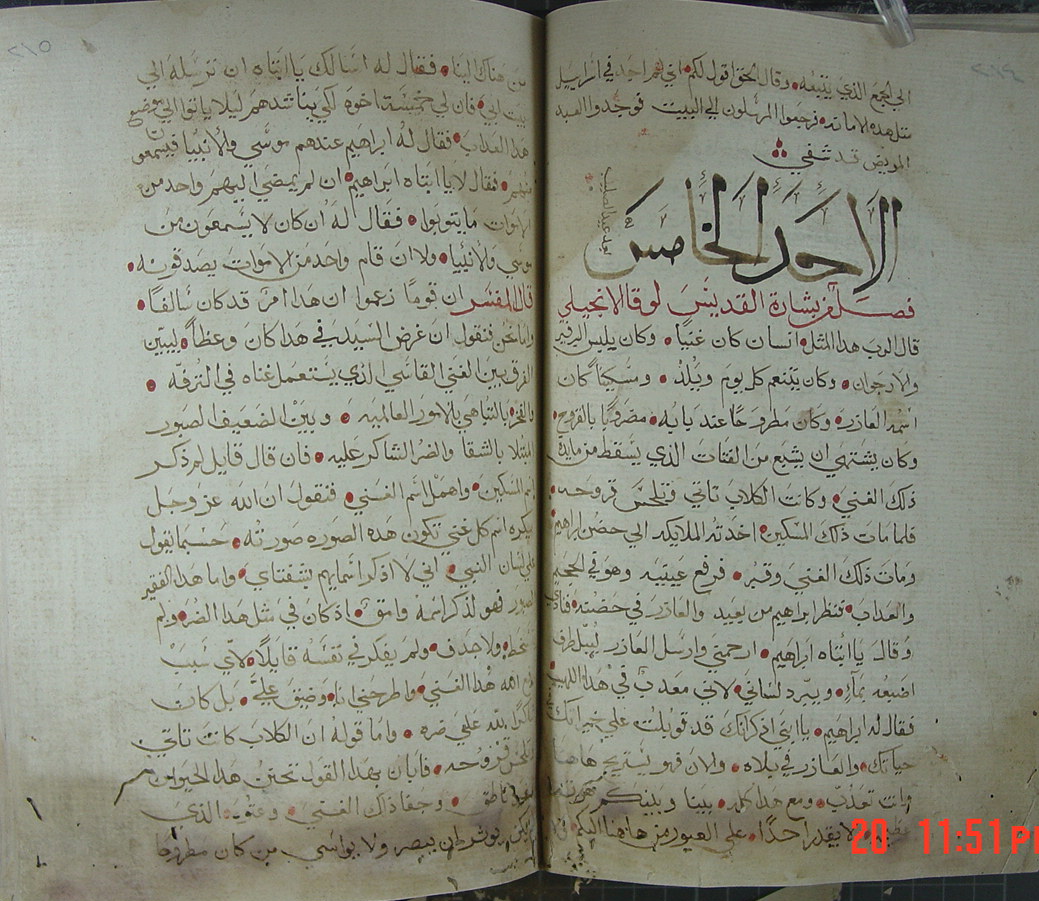 ٢١٤
الى الجمع الذي يتبعه • وقال الحق اقول لكم • اني لم اجد في اسراييل
مثل هذه الامانه • فرجعوا المرسلون الى البيت فوجدوا العبد
المريض قد شفي
الاحد الخامس
بعد عيد الصليب
فصل من بشارة القديس لوقا الانجيلي
قال الرب هذا المثل • انسان كان غنيا • وكان يلبس البرفير
والارجوان • وكان يتنعم كل يوم ويلذ • ومسكينا كان
اسمه العازر • وكان مطروحا عند بابه • مضروبا بالقروح •
وكان يشتهي ان يشبع من الفتات الذي يسقط من مايدة
ذلك الغني • وكانت الكلاب تاتي وتلحس قروحه •
فلما مات ذلك المسكين • اخدته الملايكه الى حضن ابراهيم
ومات ذلك الغني وقبر • فرفع عينيه وهو في الجحيم
والعداب • فنظر ابراهيم من بعيد والعازر في حضنه • فنادى
وقال يا ابتاه ابراهيم • ارحمني وارسل العازر ليبل طرف
اصبعه بماء • ويبرد لساني • لاني معدب في هدا اللهيب
فقال له ابراهيم • يا ابني اذكر انك قد قوبلت على خيراتك
حياتك • والعازر في بلاه • والان فهو يستريح هاهنا
وانت تعدب • ومع هدا كله • بيننا وبينكم هوه
عظيمه لا يقدر احدا • على العبور من هاهنا اليكم •
20 11:51 P
٢١٥
من هناك الينا • فقال له اسالك يا ابتاه ان ترسله الى
بيت ابي • فان لي خمسة اخوه لكي يناشدهم ليلا ياتوا الى موضع
هدا العداب • فقال له ابراهيم عندهم موسى والانبيا فيسمعون
منهم • فقال لا يا ابتاه ابراهيم • ان لم يمضي اليهم واحد من
الاموات ما يتوبوا • فقال له ان كان لا يسمعون من
موسى والانبيا • ولا ان قام واحد من الاموات يصدقونه •
قال المفسر ان قوما زعموا ان هدا امر قد كان سالفا •
واما نحن فنقول ان غرض السيد في هدا كان وعظا • ليبين
الفرق بين الغني القاسي الذي يستعمل غناه في الترفه •
والفخر • بالتباهي بالامور العالميه • وبين الضعيف الصبور
المبتلا بالشقا والضر الشاكر عليه • فان قال قايل لم ذكر
اسم المسكين • واهمل اسم الغني • فنقول ان الله عز وجل
يكره اسم كل غني تكون هده الصوره صورته • حسبما يقول
على لسان النبي • اني لا اذكر اسمايهم بشفتاي • واما هدا الفقير
الصبور فهو لذكر اسمه وامق • اذ كان في مثل هدا الضر • ولم
يسخط • ولا جدف • ولم يفكر في نفسه قايلا • لاي سبب
الله هدا الغني • واطرحني انا • وضيق علي • بل كان
شاكرا لله على ضره • واما قوله ان الكلاب كانت تاتي
وتلحس قروحه • فابان بهدا القول تحنن هدا الحيوان
ناطق • وجفا ذلك الغني • وعتوه • الذي
لم يكن يوثر ان يبصر ولا يواسي من كان مطروحا